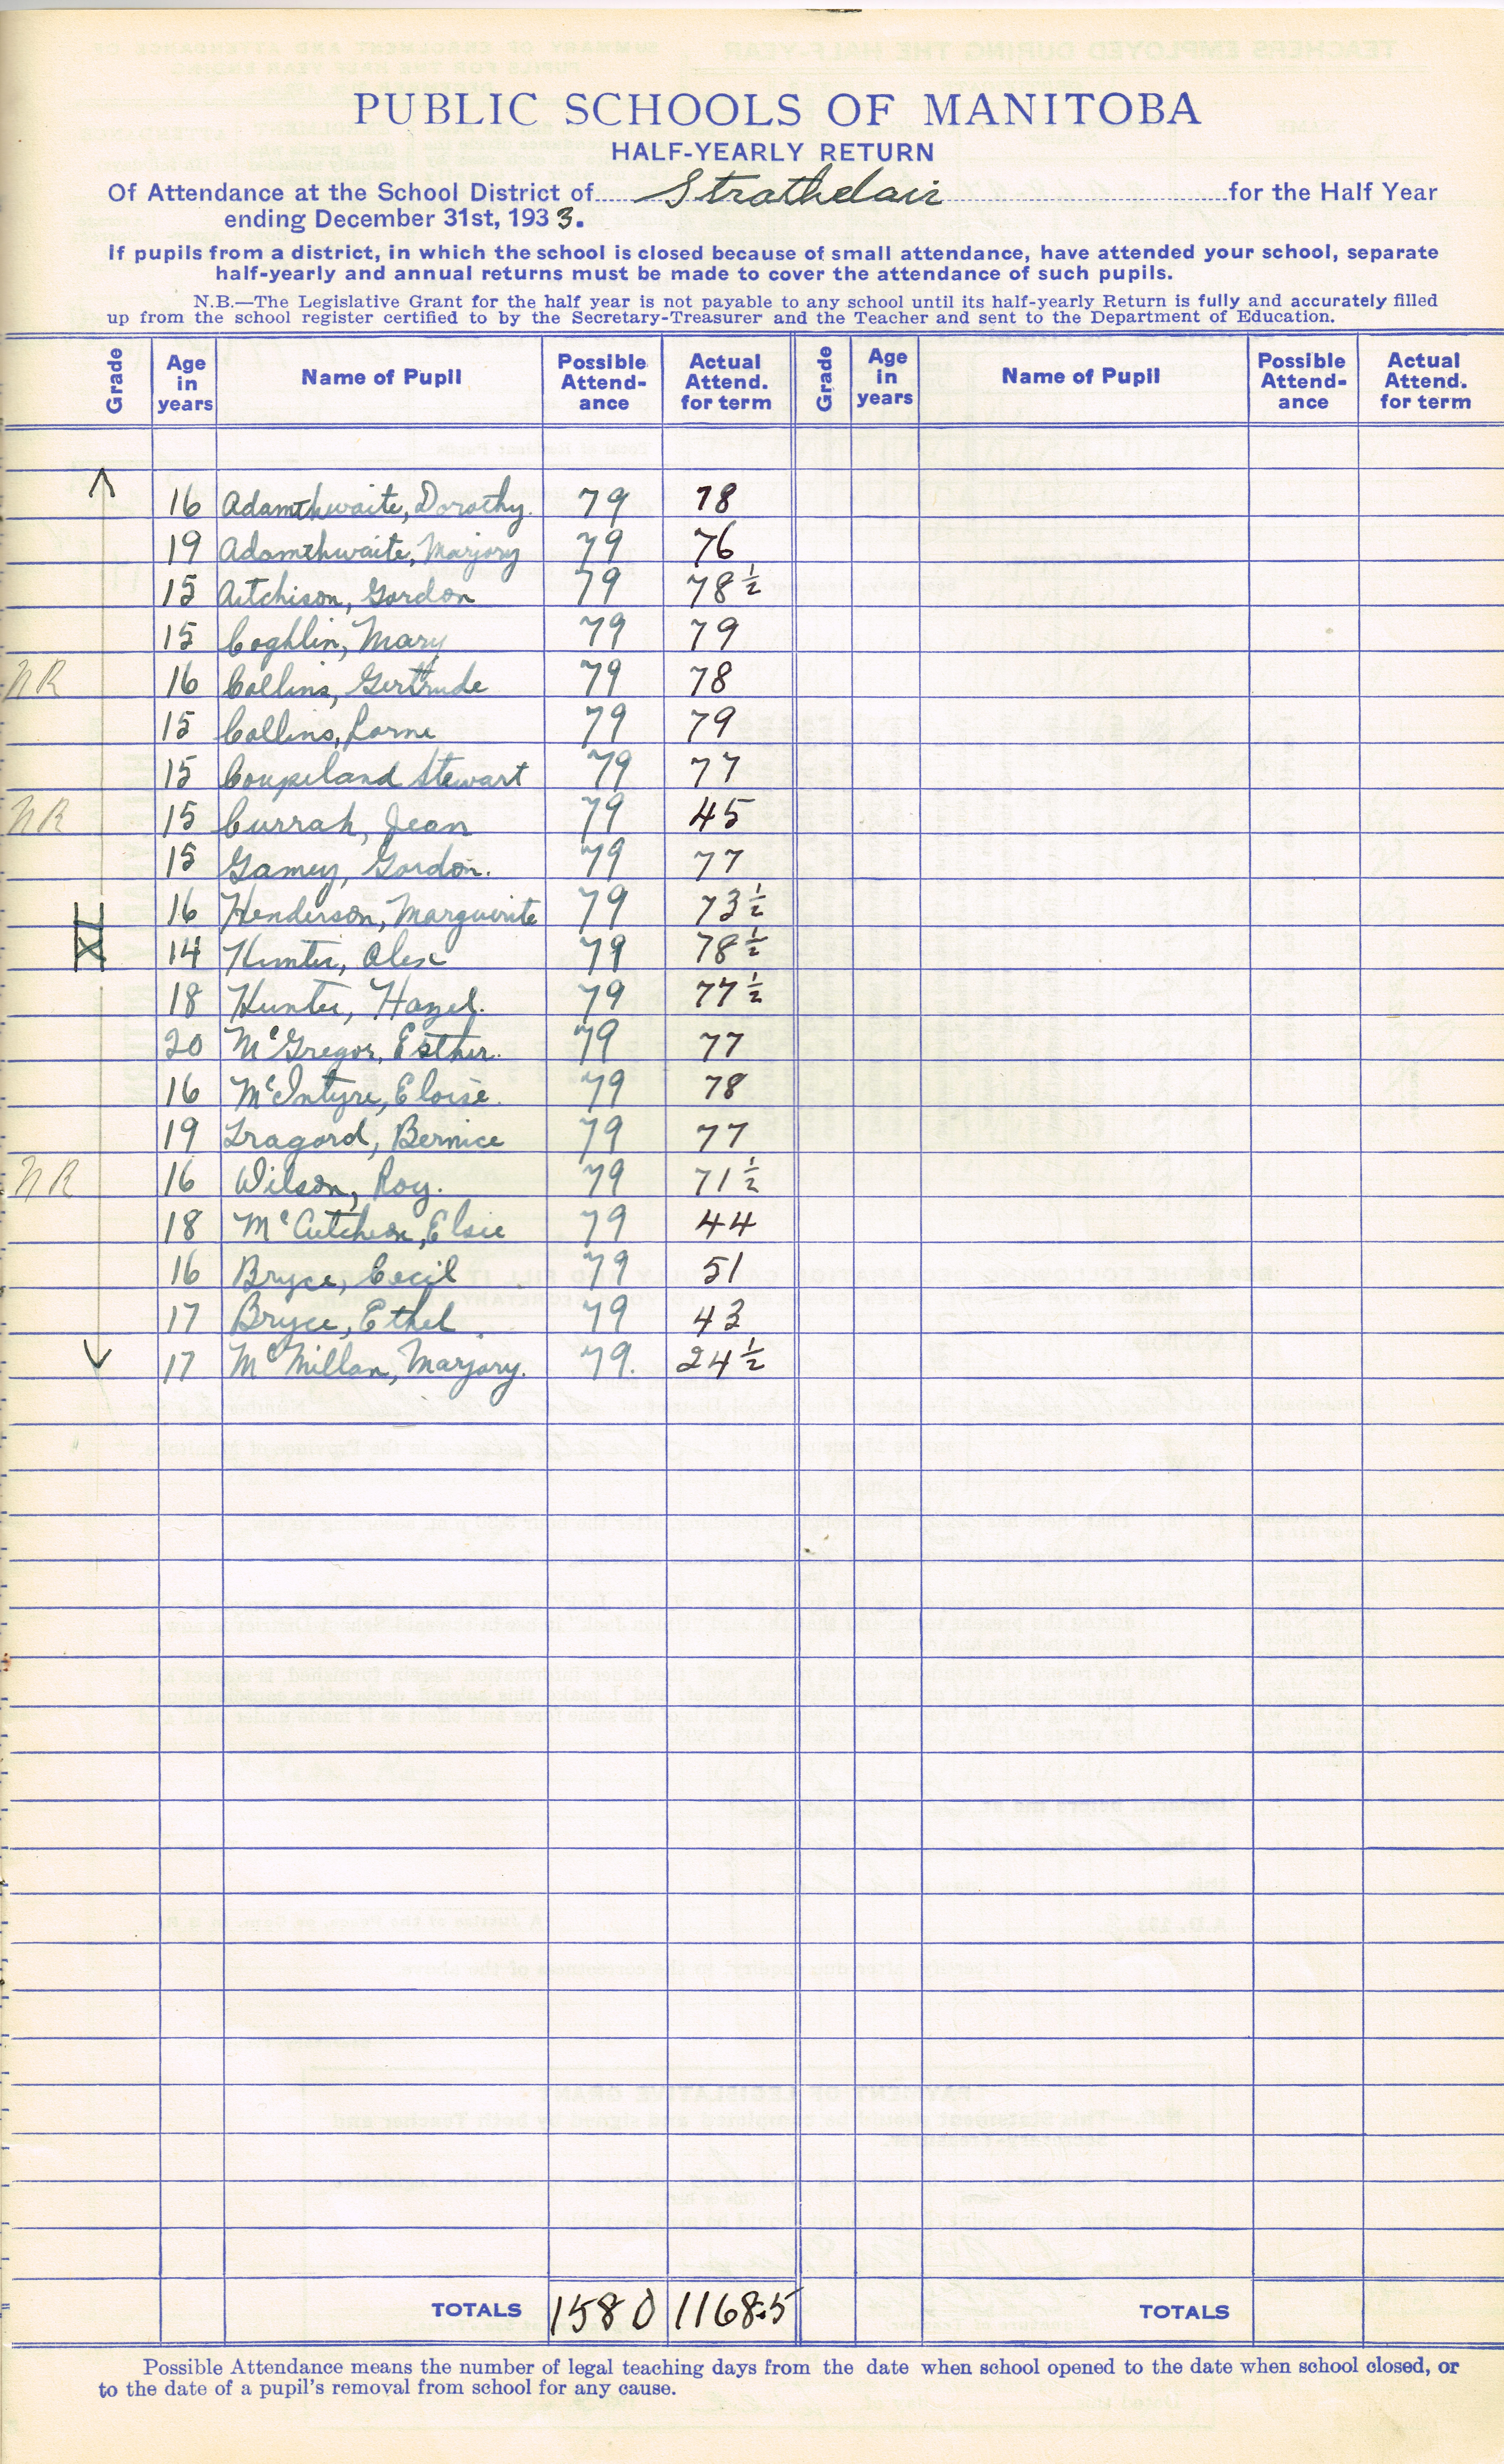 PUBLIC SCHOOLS OF MANITOBA
HALF-YEARLY RETURN
Of Attendance at the School District of Strathclair for the Half Year
ending December 31st, 1933.
If pupils from a district, in which the school is closed because of small attendance, have attended your school, separate
half-yearly and annual returns must be made to cover the attendance of such pupils.
N.B.—The Legislative Grant for the half year is not payable to any school until its half-yearly Return is fully and accurately filled
up from the school register certified to by the Secretary-Treasurer and the Teacher and sent to the Department of Education.
Grade Age in years Name of Pupil Possible Attend-ance Actual Attend. for term Grade Age in years Name of Pupil Possible Attend-ance Actual Attend. for term
16 Adamthwaite, Dorothy. 79 78
19 Adamthwaite, Marjory 79 76
15 Aitchison, Gordon 79 78 ½
15 Coghlin, Mary 79 79
NR 16 Collins, Gertrude 79 78
15 Collins, Lorne 79 79
15 Coupeland Stewart 79 77
NR 15 Currah, Jean 79 45
15 Gamey, Gordon. 79 77
16 Henderson, Marguerite 79 73 ½
XI 14 Hunter, Alex 79 78 ½
18 Hunter, Hazel. 79 77 ½
20 McGregor, Esther. 79 77
16 McIntyre, Eloise. 79 78
19 Tragord, Bernice 79 77
NR 16 Wilson, Roy. 79 71 ½
18 McCutcheon, Elsie 79 44
16 Bryce, Cecil 79 51
17 Bryce, Ethel. 79 43
17 McMillan, Marjory. 79. 24 ½
TOTALS 1580 1168.5 TOTALS
Possible Attendance means the number of legal teaching days from the date when school opened to the date when school closed, or
to the date of a pupil's removal from school for any cause.